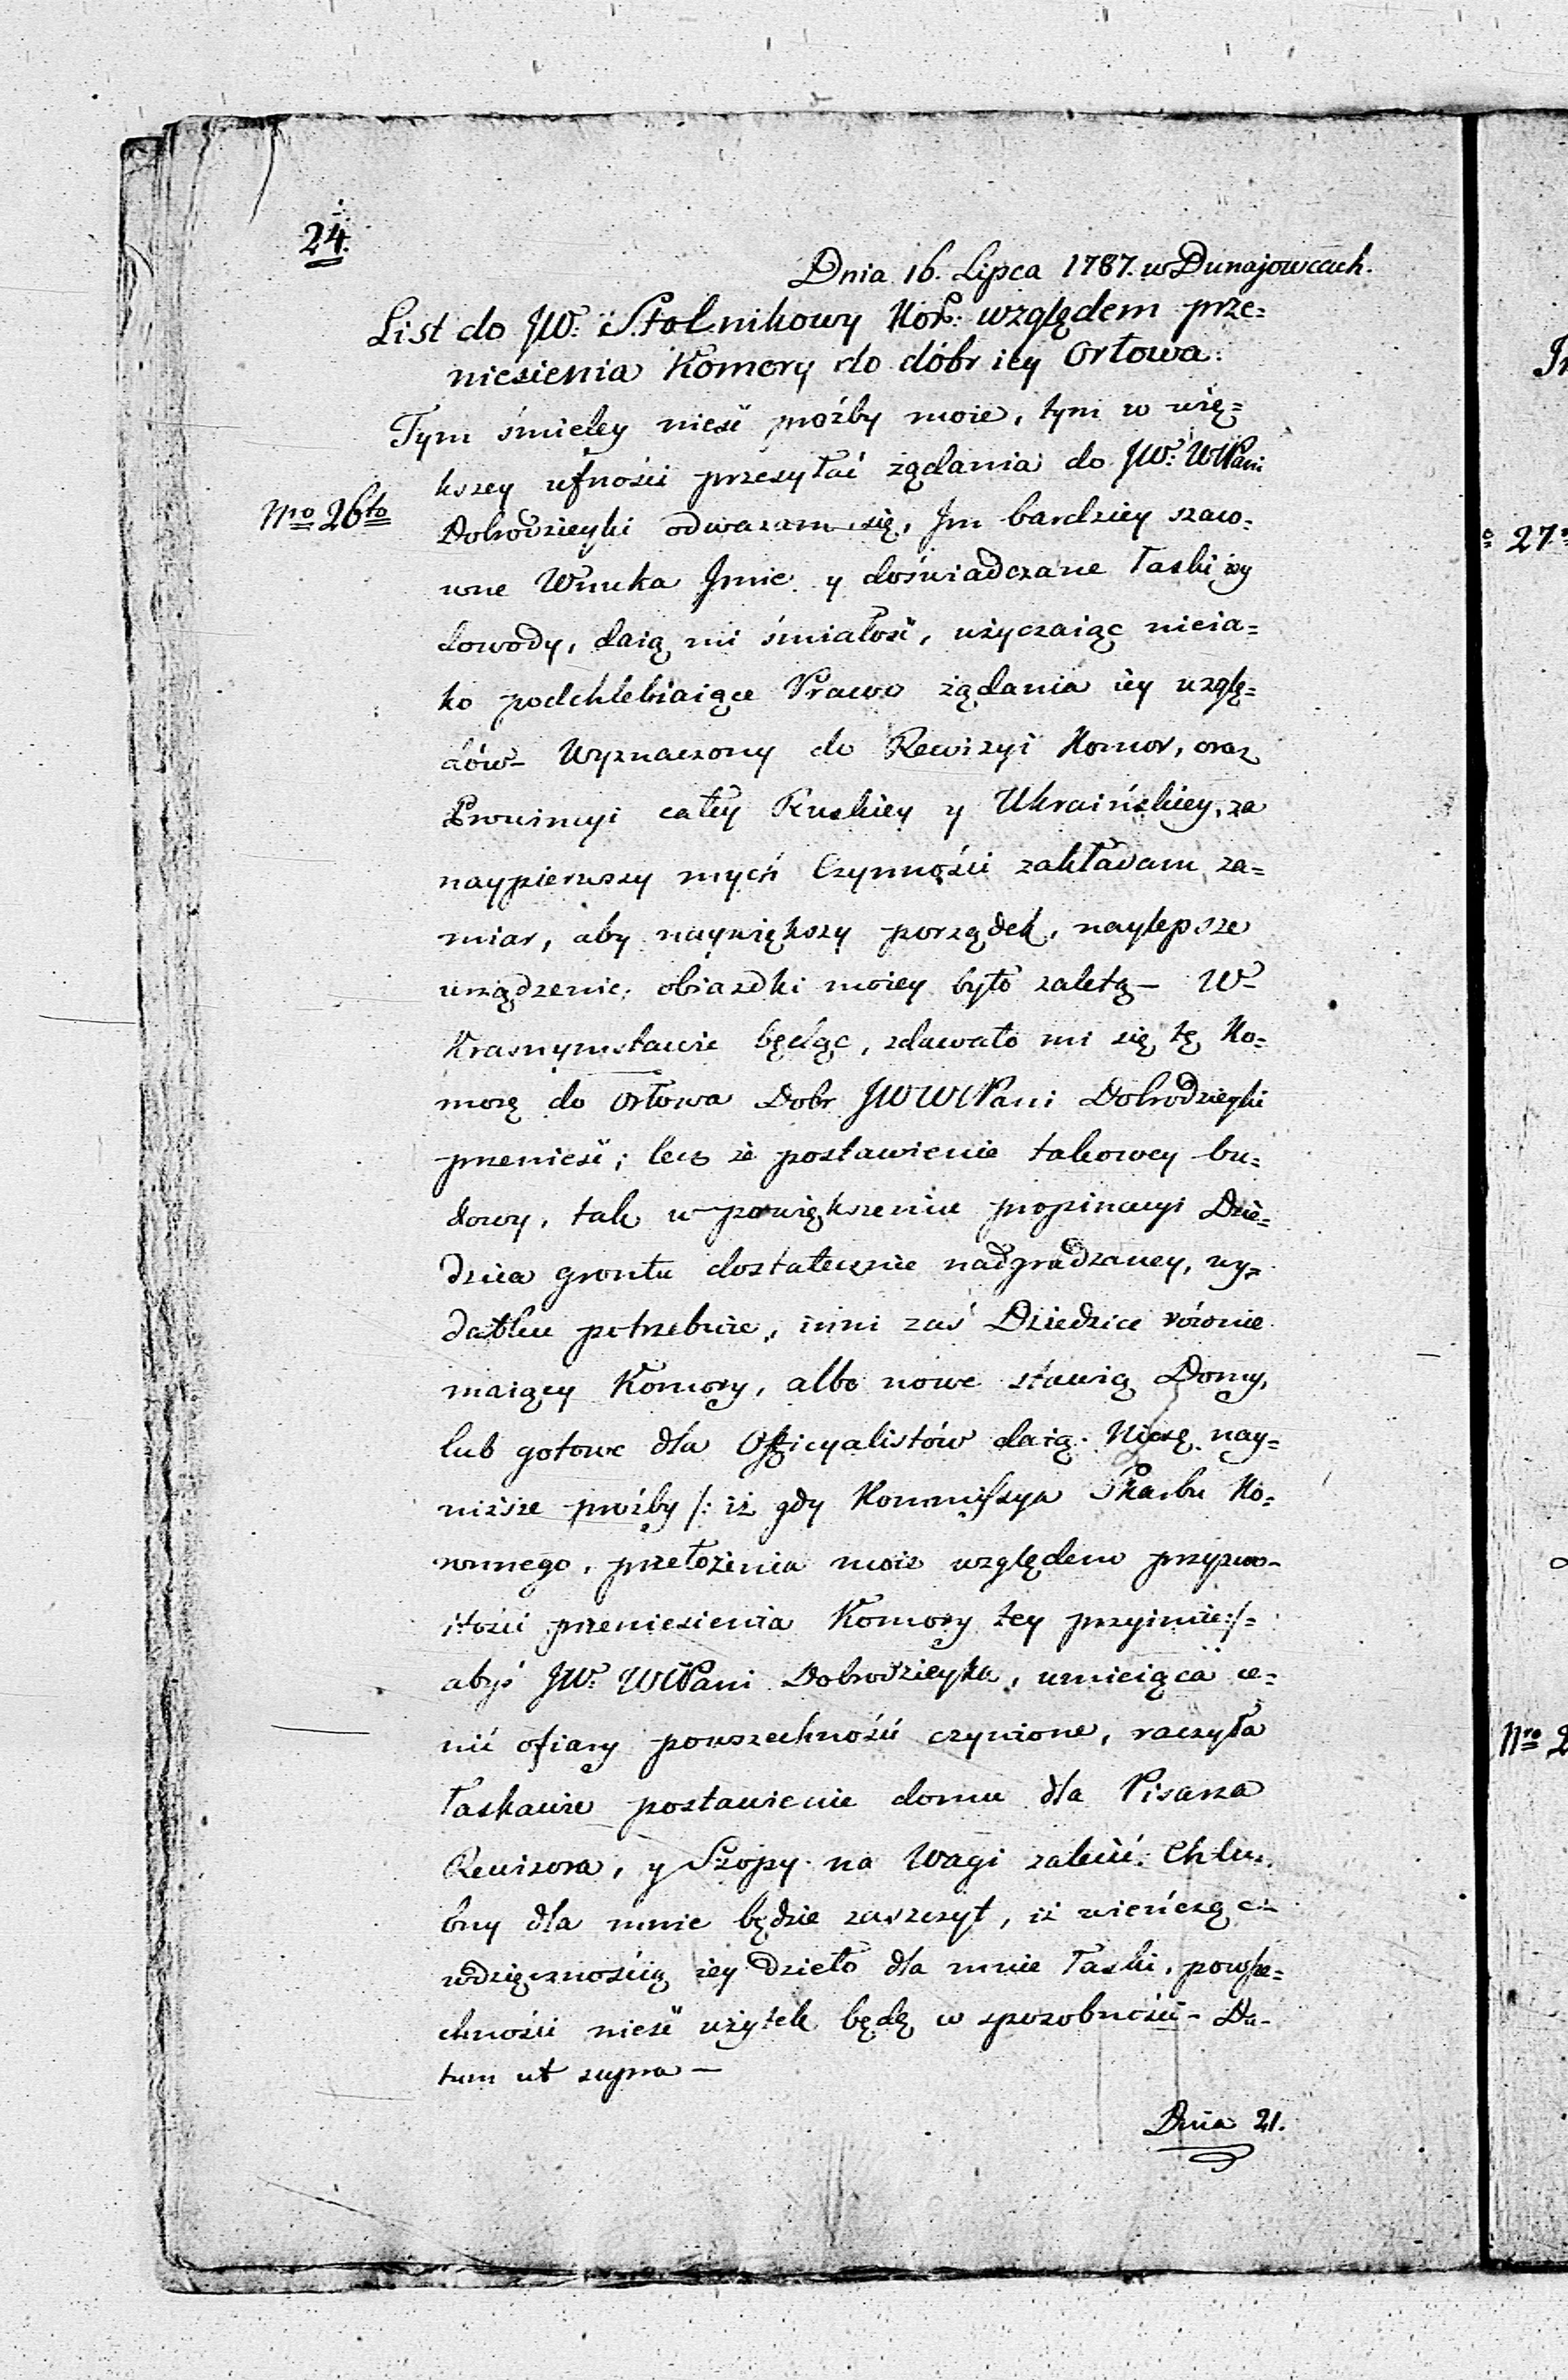 24.
Dnia 16. Lipca 1787. w Dunajowcach.
List do JW: Stolnikowy Kor: względem prze=
niesienia Komory do dóbr iey Orłowa:
Tym śmieley nieść proźby moie, tym w wię=
kszey ufności przesyłać żądania do JW: WMPani
Nro 26to
Dobrodzieyki odwazam się, Jm bardziey szaco=
wne Wnuka Jmie y doświadczane łaski iey
dowody, daią mi śmiałość, użyczaiąc nieia=
ko podchlebiaiące Prawo żądania iey wzglę=
dów - Wyznaczony do Rewizyi Komor, oraz
Prowincyi całey Ruskiey y Ukraińskiey, za
naypierwszy mych Czynności zakładam za=
miar, aby naywiększy porządek, naylepsze
urządzenie, obiazdki moiey było zaletą - W
Krasnymstawie będąc, zdawało mi się tę Ko=
morę do Orłowa Dobr JWWMPani Dobrodzieyki
przenieść; lecz że postawienie takowey bu=
dowy, tak w powiększeniu propinacyi Dzie=
dzica grontu dostatecznie nadgradzaney, wy=
datku potrzebuie, inni zaś Dziedzice równie
maiący Komory, albo nowe stawią Domy,
lub gotowe dla Officyalistów daią. Niosę nay=
niższe proźby /: iż gdy Kommissya Skarbu Ko=
ronnego, przełożenia moie względem przyzwo=
itości przeniesienia Komory tey przyimie :/=
abyś JW: WMPani Dobrodzieyka, umieiąca ce=
nić ofiary powszechności czynione, raczyła
łaskawie postawienie domu dla Pisarza
Rewizora, y Szopy na Wagi zalecić. Chlu=
bny dla mnie będzie zaszczyt, iż wieńcząc
wdzięcznością iey dzieło dla mnie łaski, powsze=
chności nieść użytek będę w sposobności - Da=
tum ut supra —
Dnia 21.
27
Nro 2